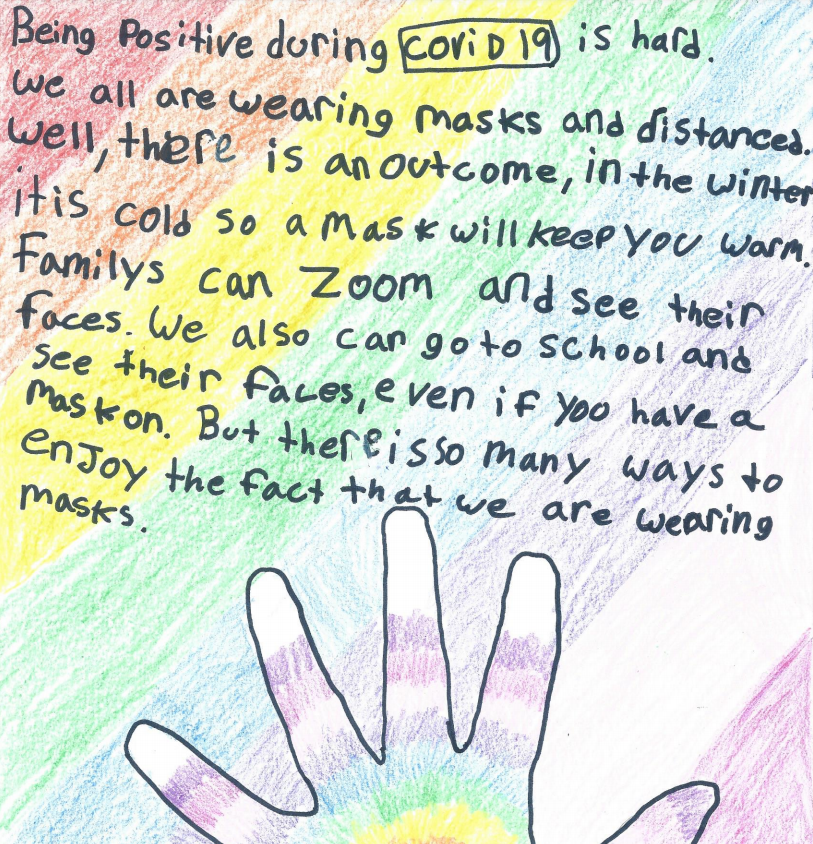 Being Positive during covid 19 is hard.
we all are wearing masks and distanced.
well, there is an outcome, in the winter
it is cold so a mask will keep you warm.
Familys can Zoom and see their
faces. We also can go to school and
see their faces, even if you have a
mask on. But there is so many ways to
enjoy the fact that we are wearing
masks.